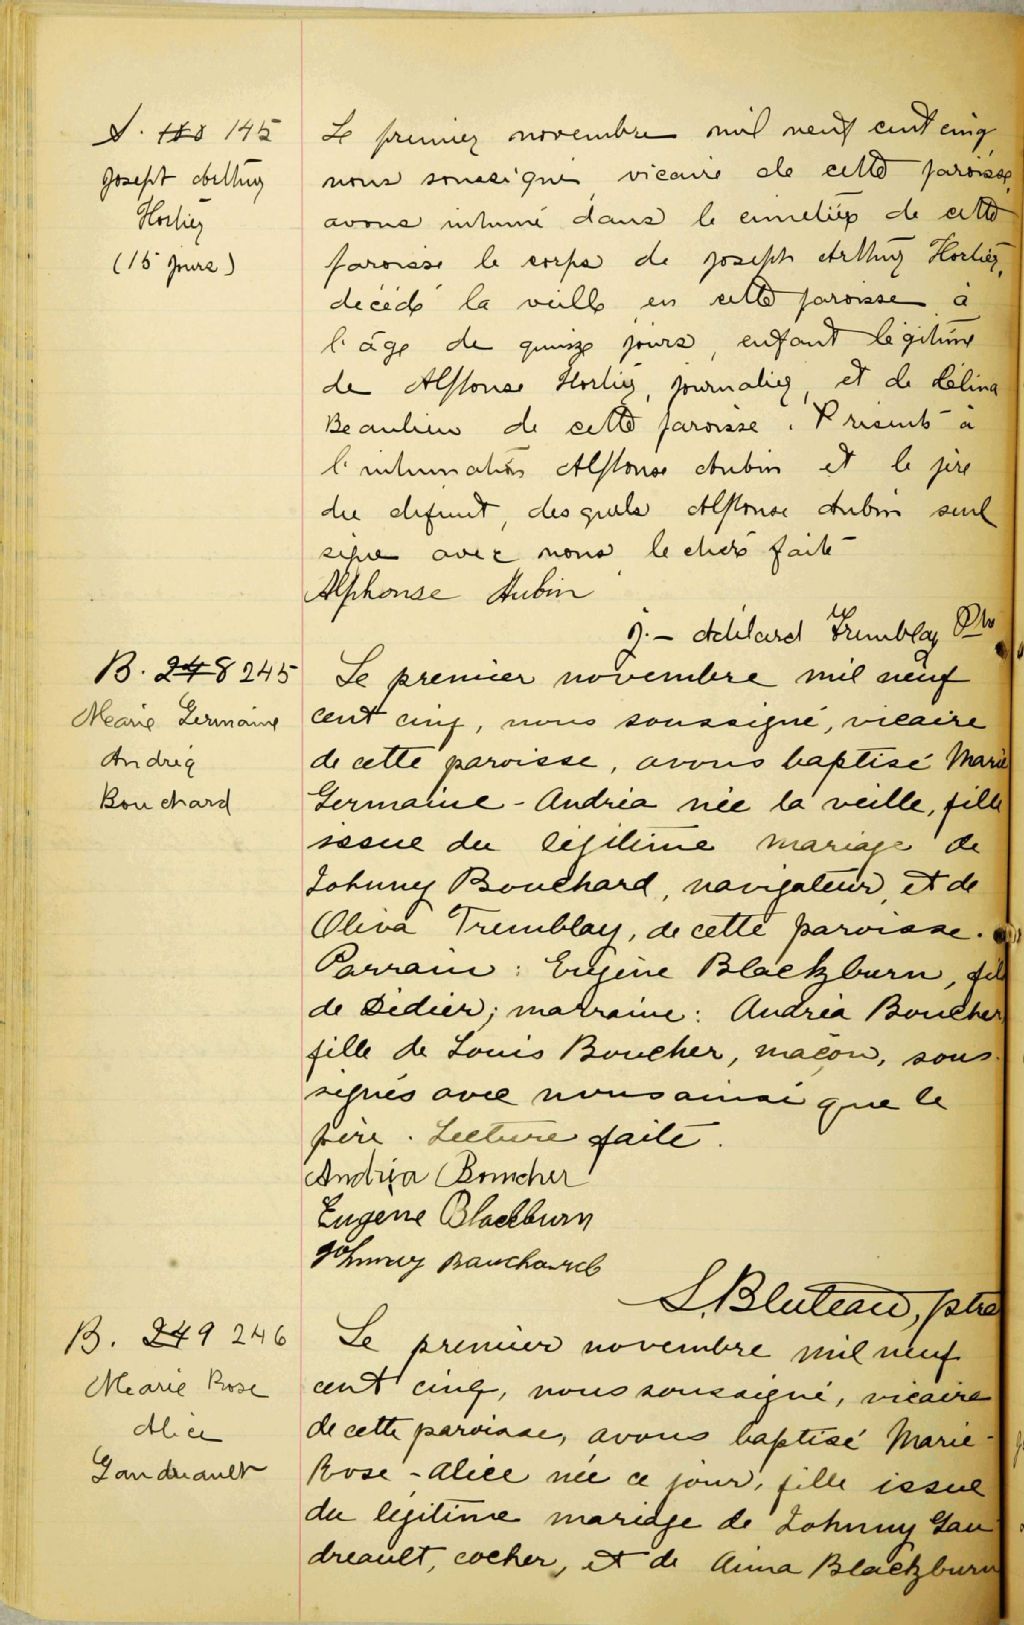 S. 188 145
Joseph Arthur
Hortier
(15 jours)
Le premier novembre mil neuf cent cinq,
nous soussigné, vicaire de cette paroisse,
avons inhumé dans le cimetière de cette
paroisse le corps de Joseph Arthur Hortier,
décédé la veille en cette paroisse à
l'âge de quinze jours, enfant légitime
de Alphonse Hortier, journalier, et de Délina
Beaulieu de cette paroisse. Présents à
l'inhumation Alphonse Aubin et le père
du défunt, desquels Alphonse Aubin seul
signe avec nous. lecture faite
Alphonse Aubin
J.- Adélard Tremblay Ptre
B. 248 245
Marie Germaine
Andréa
Bouchard
Le premier novembre mil neuf
cent cinq, nous soussigné, vicaire
de cette paroisse, avons baptisé Marie
Germaine-Andréa née la veille, fille
issue du légitime mariage de
Johnny Bouchard, navigateur, et de
Oliva Tremblay, de cette paroisse.
Parrain : Eugène Blackburn, fils
de Didier; marraine : Andréa Boucher,
fille de Louis Boucher, maçon, sous-
signés avec nous ainsi que le
père. Lecture faite.
Andréa Boucher
Eugène Blackburn
Johnny Bouchard
L. Bluteau, ptre
B. 249 246
Marie Rose
Alice
Gaudreault
Le premier novembre mil neuf
cent cinq, nous soussigné, vicaire
de cette paroisse, avons baptisé Marie-
Rose-Alice née ce jour, fille issue
du légitime mariage de Johnny Gau-
dreault, cocher, et de Anna Blackburn